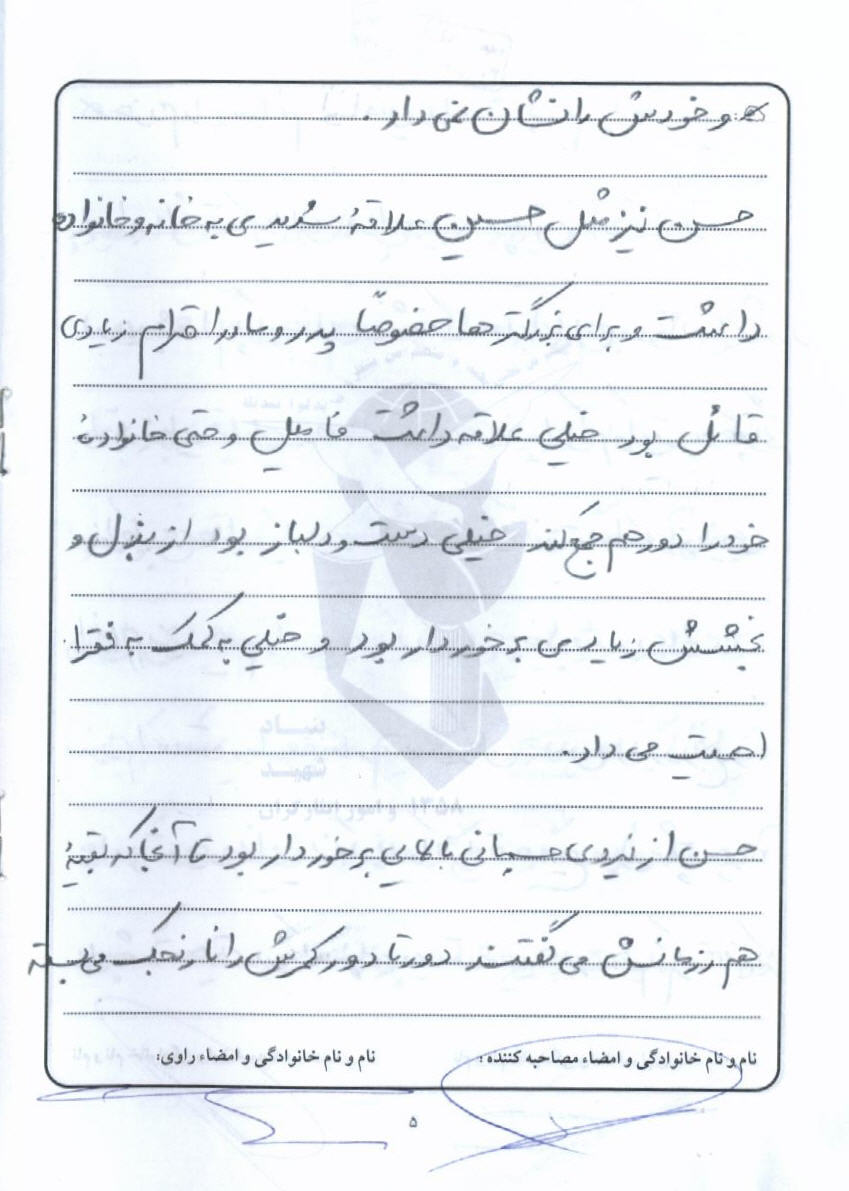 و خودش را نشان نمی داد .
حسن نیز مثل حسین علاقهٔ شدیدی به خانه و خانواده
داشت و برای بزرگترها خصوصاً پدر و مادر احترام زیادی
قائل بود خیلی علاقه داشت فامیل و حتی خانوادهٔ
خود را دور هم جمع کند خیلی دست و دلباز بود از بذل و
بخشش زیادی برخوردار بود و خیلی به کمک به فقرا
اهمیت می داد.
حسن از نیروی جسمانی بالایی برخوردار بود تا آنجا که بقیهٔ
هم رزمانش می گفتند دور تا دور کمرش را نارنجک می بسته
نام و نام خانوادگی و امضاء مصاحبه کننده :
نام و نام خانوادگی و امضاء راوی:
۵